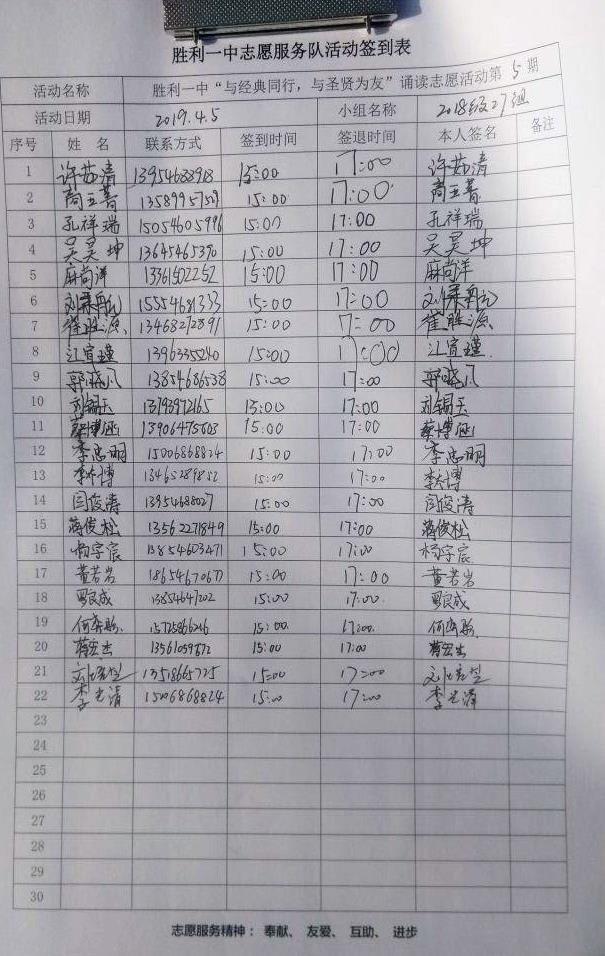 胜利一中志愿服务队活动签到表
活动名称 胜利一中“与经典同行，与圣贤为友”诵读志愿活动第 5 期
活动日期 2019.4.5 小组名称 2018级27组 备注
序号 姓 名 联系方式 签到时间 签退时间 本人签名
1 许茹清 13954688918 15:00 17:00 许茹清
2 商玉菁 13589957509 15:00 17:00 商玉菁
3 孔祥瑞 15054605996 15:00 17:00 孔祥瑞
4 吴昊坤 13645465390 15:00 17:00 吴昊坤
5 麻尚洋 13361502252 15:00 17:00 麻尚洋
6 15554681333 15:00 17:00
7 崔胜源 13468272891 15:00 17:00 崔胜源
8 江宜瑾 1396335240 15:00 17:00 江宜瑾
9 郭晓凡 13854686538 15:00 17:00 郭晓凡
10 刘锡玉 13793972165 15:00 17:00 刘锡玉
11 13906475603 15:00 17:00
12 李忠明 15006868824 15:00 17:00 李忠明
13 13465289852 15:00 17:00
14 闫俊涛 13954688027 15:00 17:00 闫俊涛
15 蒋俊松 13562271849 15:00 17:00 蒋俊松
16 杨宇宸 13854603471 15:00 17:00 杨宇宸
17 董若岩 18654670677 15:00 17:00 董若岩
18 15:00 17:00
19 15:00 17:00
20 蒋宏杰 15:00 17:00 蒋宏杰
21 13518665725 15:00 17:00
22 15006868824 15:00 17:00
23
24
25
26
27
28
29
30
志愿服务精神： 奉献、 友爱、 互助、 进步